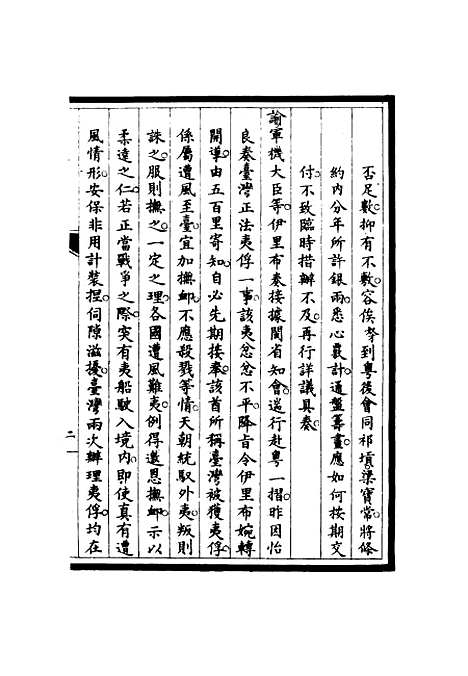 否足敷抑有不敷容俟孥到粵後會同祁𡎴梁寶常將條
約內分年所許銀兩悉心覈計通盤籌畫應如何按期交
付不致臨時措辦不及再行詳議具奏
諭軍機大臣等伊里布奏接據閩省知會遄行赴粵一摺昨因怡
良奏臺灣正法夷俘一事該夷忿忿不平降旨令伊里布婉轉
開導由五百里寄知自必先期接奉該酋所稱臺灣被獲夷俘
係屬遭風至臺宜加撫卹不應殺戮等情天朝統馭外夷叛則
誅之服則撫之一定之理各國遭風難夷例得邀恩撫卹示以
柔遠之仁若正當戰爭之際突有夷船駛入境內即使真有遭
風情形安保非用計裝捏伺隙滋擾臺灣兩次辦理夷俘均在
二